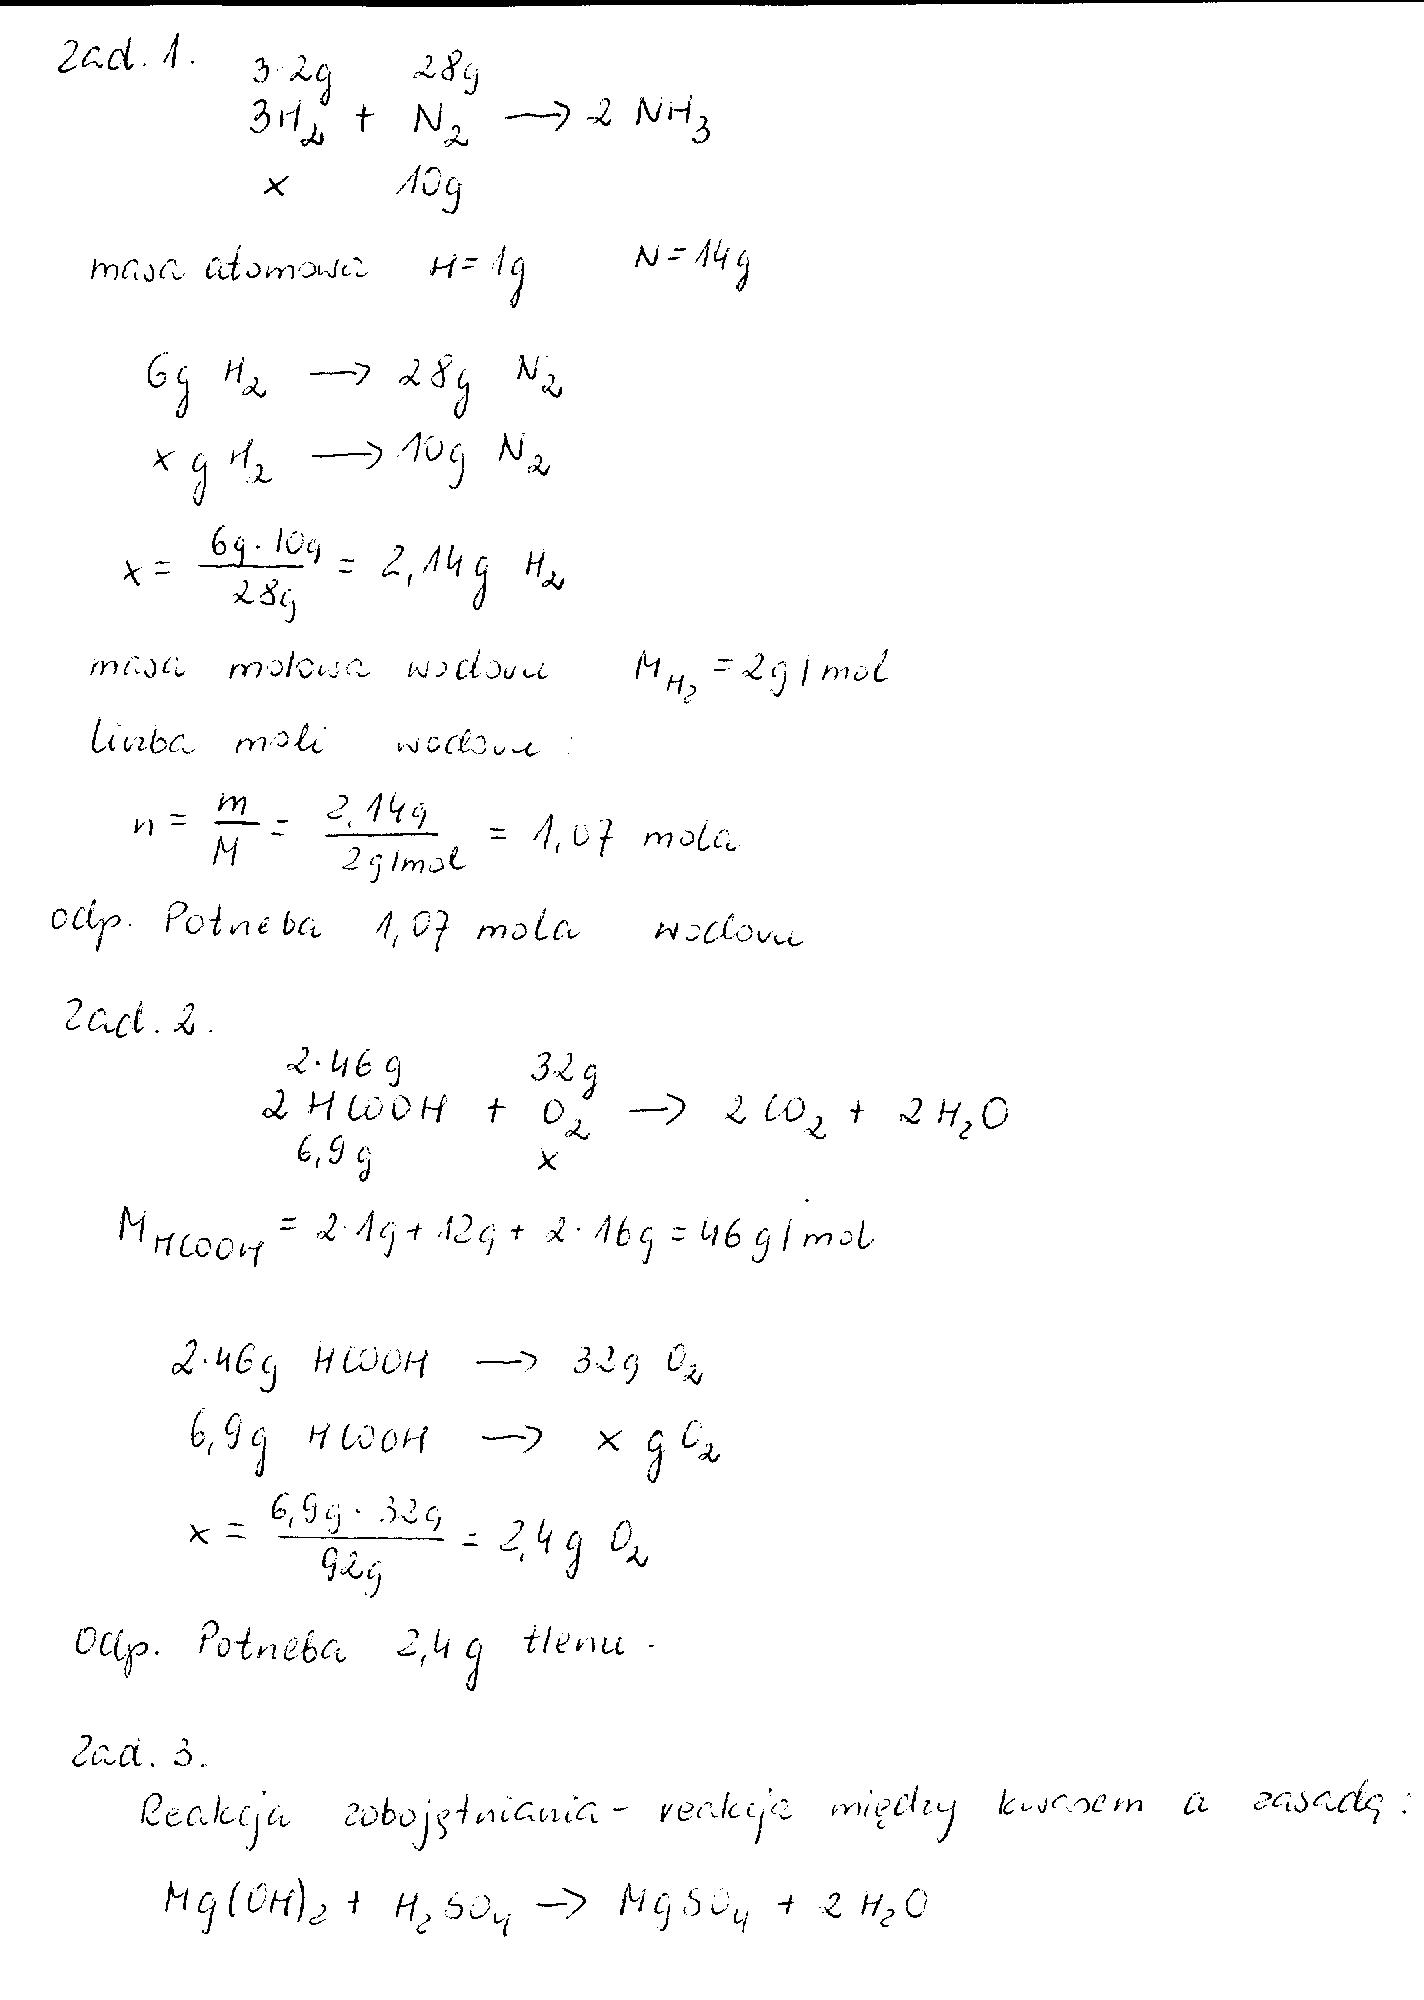 Zad. 1.
3·2g 28g
3H₂ + N₂ → 2 NH₃
x 10g
masa atomowa H = 1g N = 14g
6g H₂ → 28g N₂
x g H₂ → 10g N₂
x = 6g · 10g / 28g = 2,14g H₂
masa molowa wodoru M H₂ = 2g/mol
liczba moli wodoru:
n = m / M = 2,14g / 2g/mol = 1,07 mola
odp. Potrzeba 1,07 mola wodoru
Zad. 2.
2·46g 32g
2 HCOOH + O₂ → 2CO₂ + 2H₂O
6,9g x
M HCOOH = 2·1g + 12g + 2·16g = 46g/mol
2·46g HCOOH → 32g O₂
6,9g HCOOH → x g O₂
x = 6,9g · 32g / 92g = 2,4g O₂
Odp. Potrzeba 2,4g tlenu.
Zad. 3.
Reakcja zobojętniania - reakcja między kwasem a zasadą:
Mg(OH)₂ + H₂SO₄ → MgSO₄ + 2H₂O